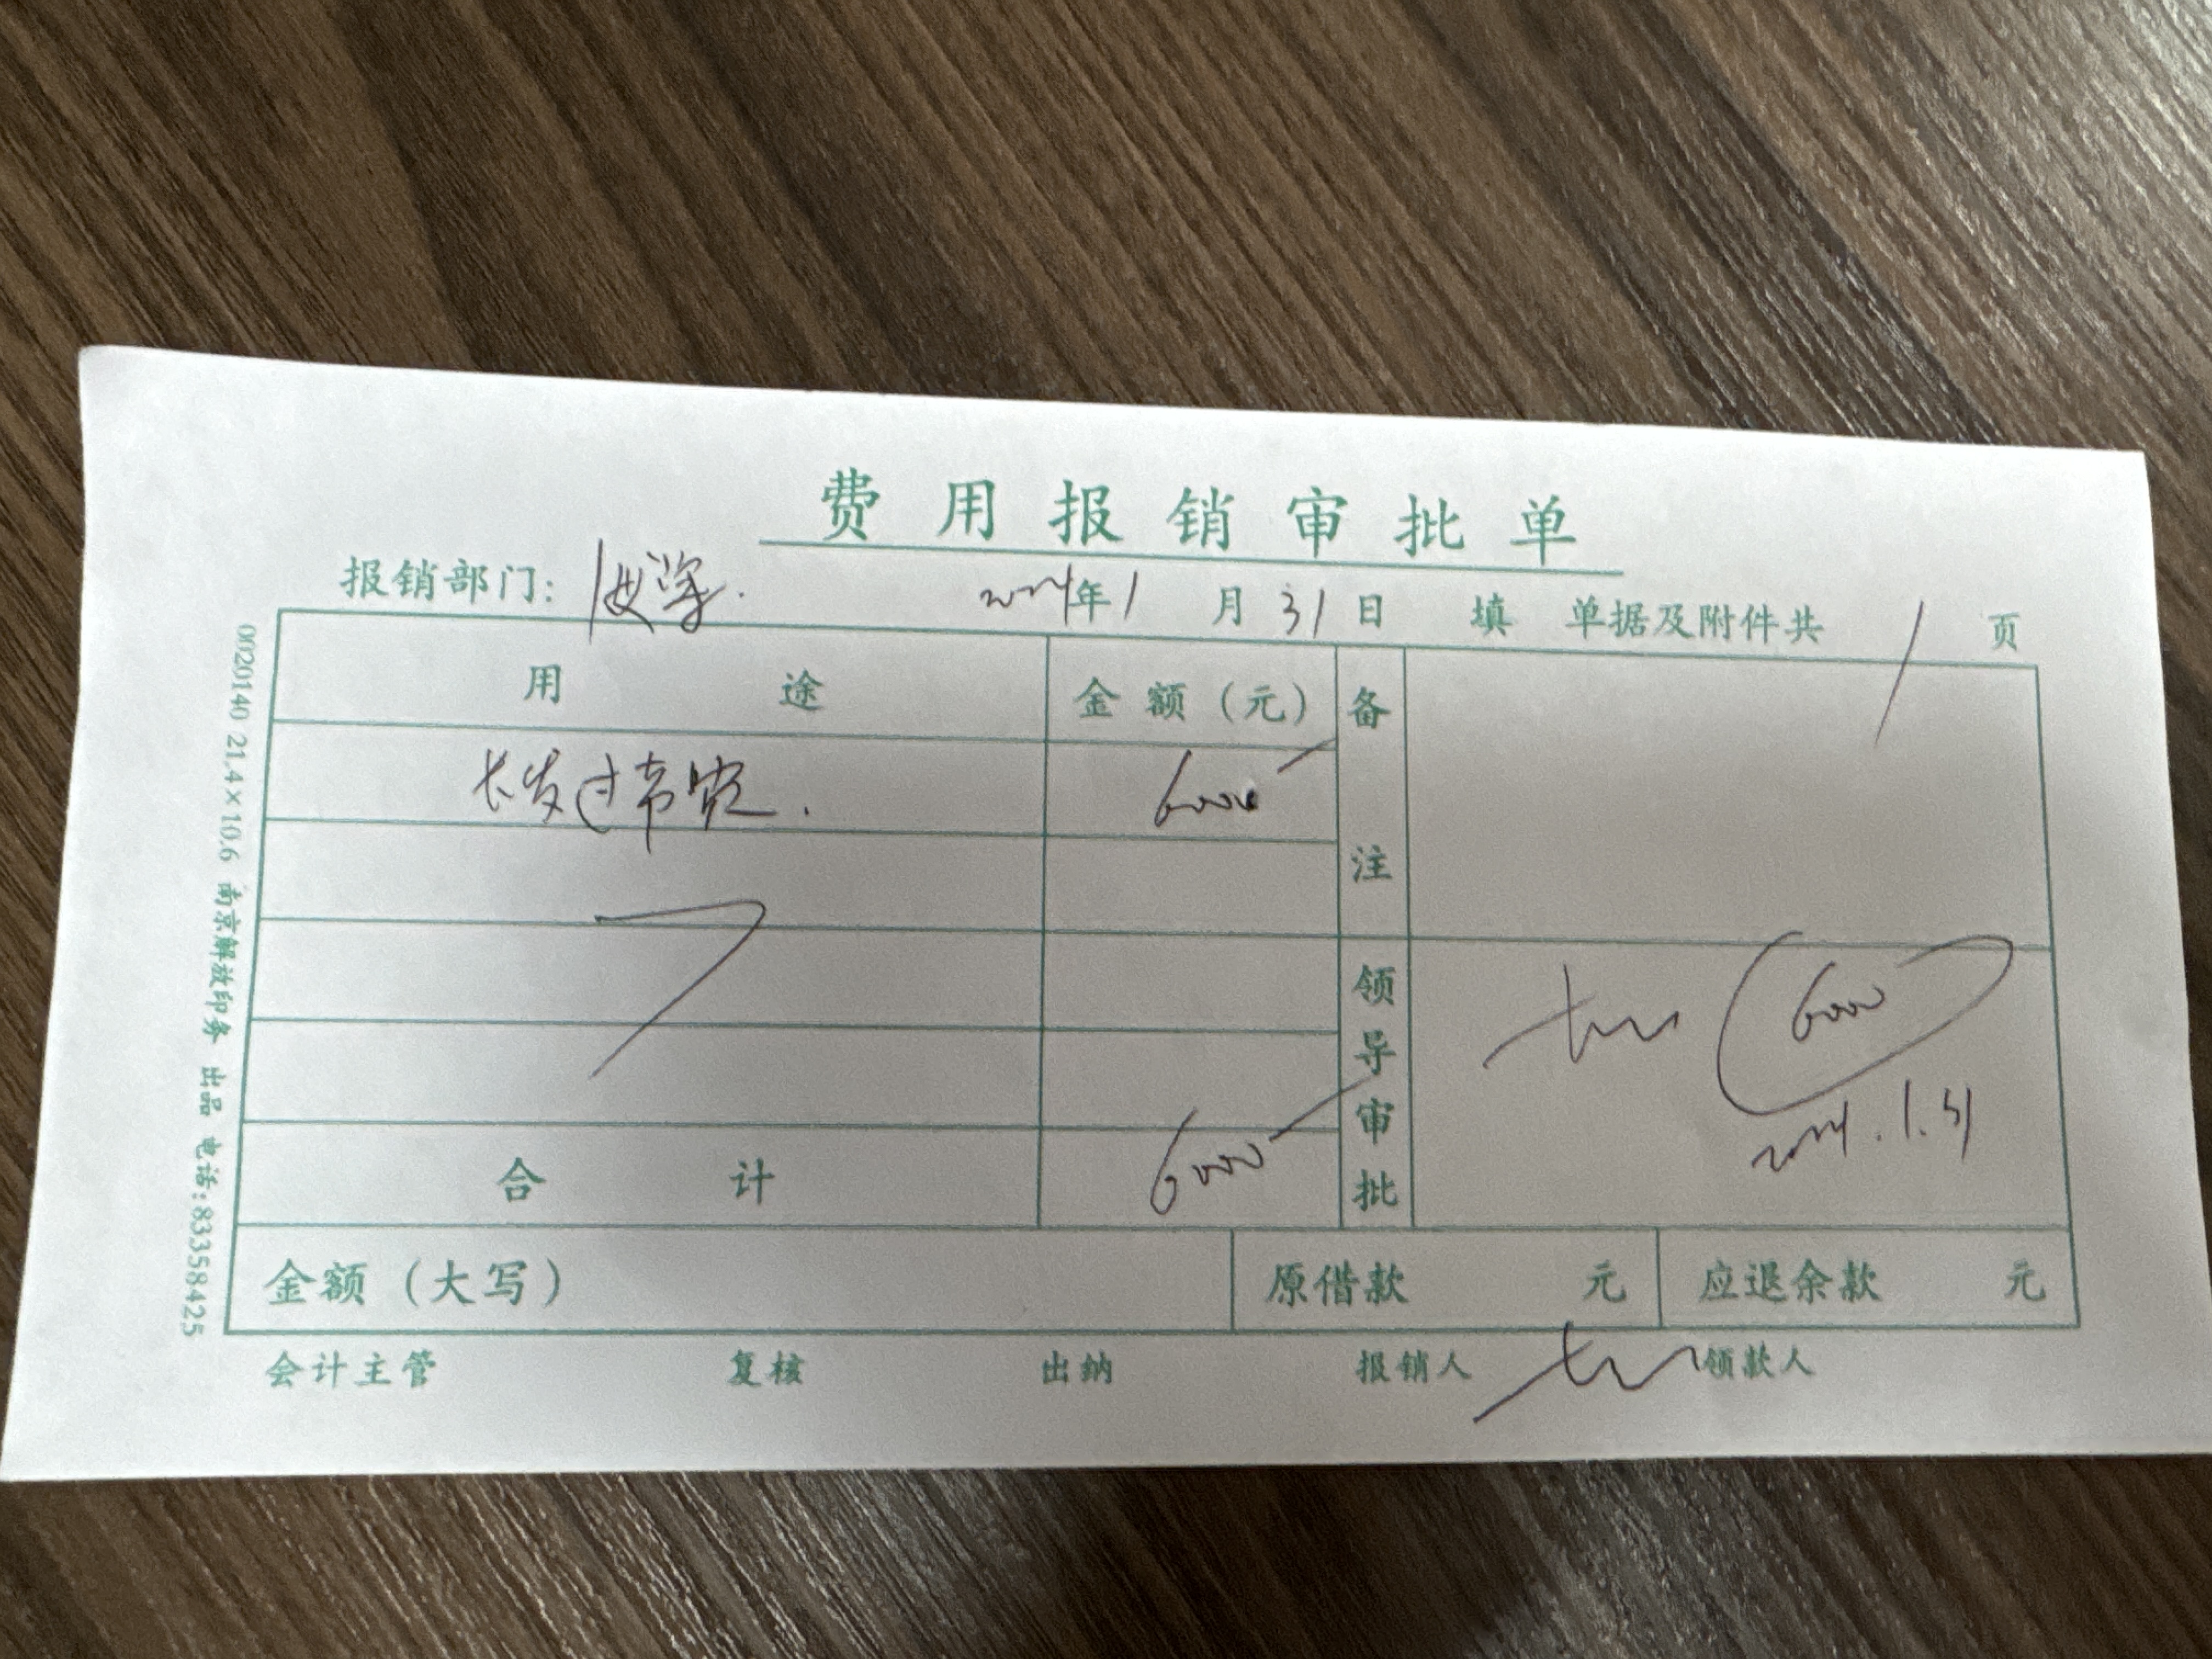 费用报销审批单
报销部门: 2024年1月31日 填 单据及附件共 1 页
用途 金额（元） 备注
长发过节费. 6000
合计 6000
领导审批 6000
2024.1.31
金额（大写） 原借款 元 应退余款 元
会计主管 复核 出纳 报销人 领款人
0020140 21.4×10.6 南京解放印务 出品 电话:83358425